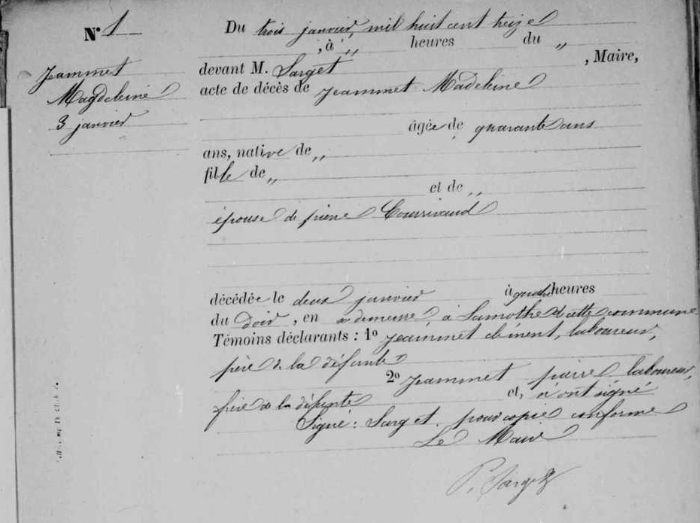 N° 1
Jeammet
Magdeleine
3 janvier
Du trois janvier, mil huit cent treize
, à „ heures du „
devant M. Sarget , Maire,
acte de décès de Jeammet Madeleine
âgée de quarante ans
ans, native de „
fille de „
et de „
épouse de pierre Coussivaud
décédée le deux janvier à quatre heures
du soir, en sa demeure, à Lamothe dcette commune
Témoins déclarants : 1° Jeammet clément, laboureur,
père de la défunte
2° Jeammet pierre laboureur,
frère de la défunte et, n'ont signé
Signé : Sarget pour copie conforme
Le Maire
P. Sarget